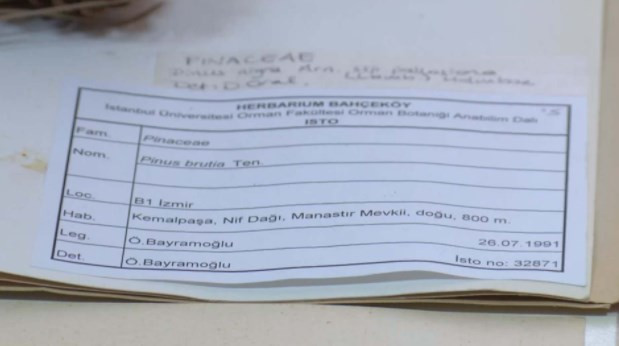 PINACEAE
Pinus nigra Arn. ssp. pallasiana
Det: D.
HERBARIUM BAHÇEKÖY
İstanbul Üniversitesi Orman Fakültesi Orman Botaniği Anabilim Dalı
ISTO
Fam. Pinaceae
Nom. Pinus brutia Ten.
Loc. B1 İzmir
Hab. Kemalpaşa, Nif Dağı, Manastır Mevkii, doğu, 800 m.
Leg. Ö.Bayramoğlu 26.07.1991
Det. Ö.Bayramoğlu İsto no: 32871